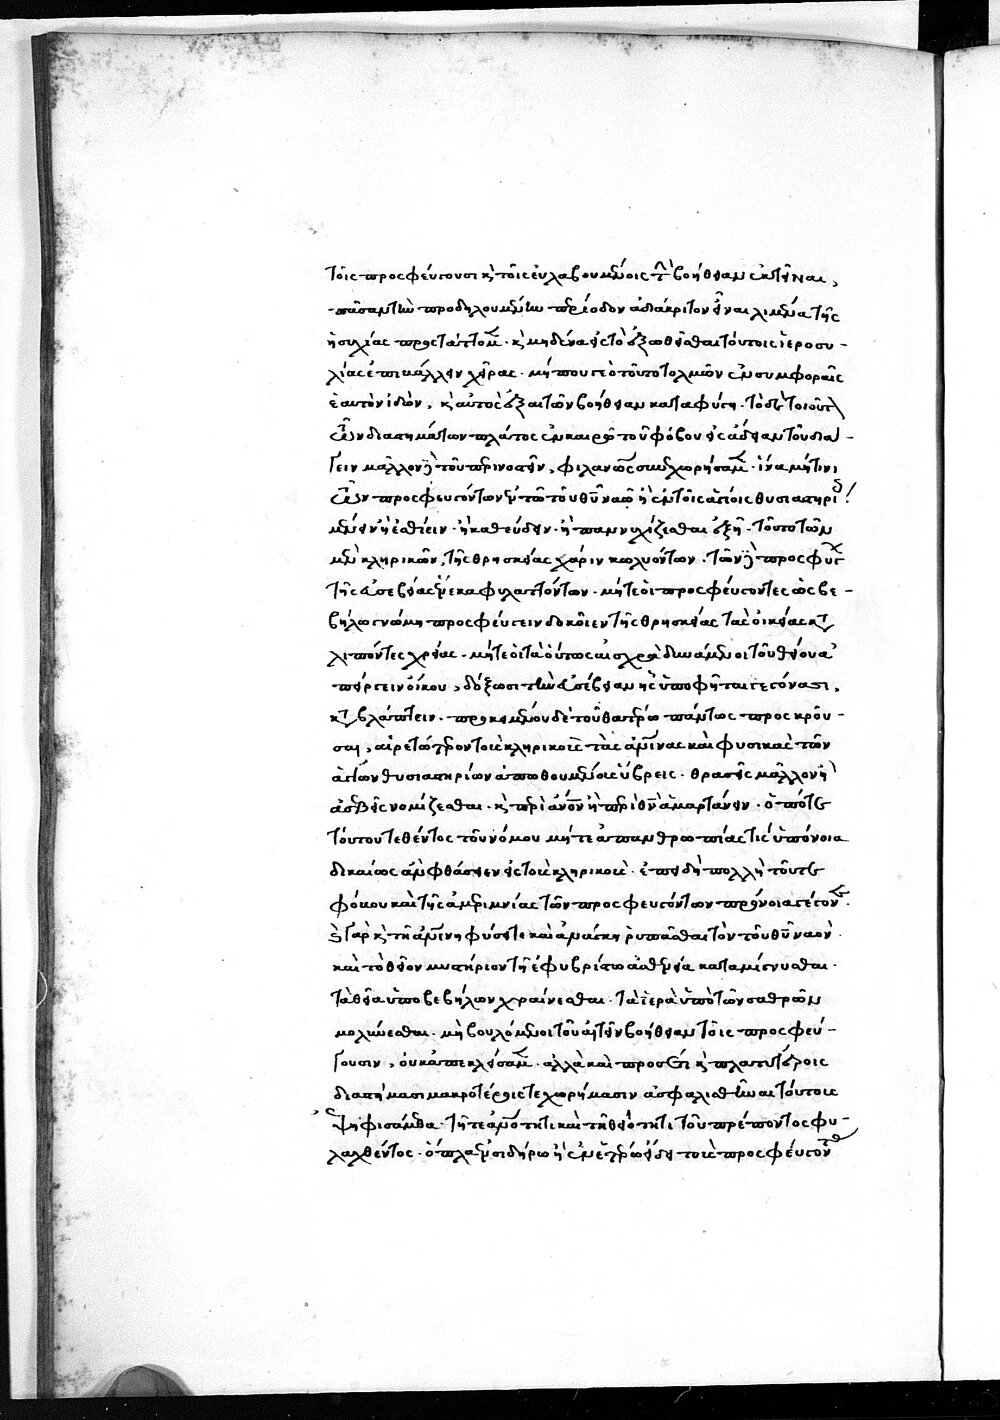 τοῖς προσφεύγουσι κ(αὶ) τοῖς εὐλαβουμένοις τ(ὴν) βοήθειαν ἐκτεῖναι,
πᾶσαν τὴν προδηλουμένην περίοδον ἀδιάκριτον εἶναι λιμένα τῆς
ἡσυχίας προστάττομεν. κ(αὶ) μηδένα εἰς τὸ ἐξωθεῖσθαι τούτοις ἱεροσυ-
λίας ἐπιβάλλειν χεῖρας. μήπου γε ὁ τοῦτο τολμῶν ἐν συμφοραῖς
ἑαυτὸν ἰδὼν, κ(αὶ) αὐτὸς ἐξαιτῶν βοήθειαν καταφύγῃ. τὸ δὲ τοιοῦτ(ον)
τῶν διαστημάτων πλάτος ἐν καιρῷ τοῦ φόβου εἰς ἄδειαν τοῦ διά-
γειν μᾶλλον ἢ τοῦ περινοστεῖν, φιλανθρώπως συνεχωρήσαμεν. ἵνα μήτινι
τῶν προσφευγόντων ἐν τῷ τοῦ θεοῦ ναῷ ἢ ἐν τοῖς ἁγίοις θυσιαστηρί(οις)
μένειν ἢ ἐσθίειν. ἢ καθεύδειν. ἢ παννυχίζεσθαι ἐξῇ. τοῦτο τῶν
μὲν κληρικῶν, τῆς θρησκείας χάριν κωλυόντων. τῶν δὲ προσφύγ(ων)
τῆς εὐσεβείας ἕνεκα φυλαττόντων. μήτε οἱ προσφεύγοντες ὡς βε-
βήλῳ γνώμῃ προσφεύγειν δοκοῖεν τῆς θρησκείας τὰς οἰκείας κατα-
λιπόντες χρείας. μήτε οἱ τὰ οὕτως αἰσχρὰ δυνάμενοι τοῦ θείου ἀ-
πείργειν οἴκου, δόξωσι τὴν εὐσέβειαν ἧς ὑποφῆται γεγόνασι,
καταβλάπτειν. προκειμένου δὲ τοῦ θατέρῳ πάντως προσκροῦ-
σαι, αἱρετώτερον τοῖς κληρικοῖς τὰς ἀνθρωπίνας καὶ φυσικὰς τῶν
ἁγίων θυσιαστηρίων ἀπωθουμένοις ὕβρεις. θρασεῖς μᾶλλον ἢ
ἀσεβεῖς νομίζεσθαι. κ(αὶ) περὶ ἀνθρώπον ἢ περὶ θεὸν ἁμαρτάνειν. ὁπότε
τούτου τεθέντος τοῦ νόμου μήτε ἀπανθρωπίας τις ὑπόνοια
δικαίως ἂν φθάσειεν εἰς τοὺς κληρικούς. ἐπειδὴ πολλὴ τοῦ τε
φόβου καὶ τῆς ἀμεριμνίας τῶν προσφευγόντων πρόνοια γέγονεν.
εἰ γὰρ κ(αὶ) τῇ ἀνθρωπίνῃ φύσει τε καὶ ἀνάγκῃ ῥυπᾶσθαι τὸν τοῦ θεοῦ ναὸν.
καὶ τὸ θεῖον μυστήριον τῇ ἐφυβρίστῳ ἀσθενείᾳ καταμίγνυσθαι.
τὰ θεῖα ὑπὸ βεβήλων χραίνεσθαι. τὰ ἱερὰ ὑπὸ τῶν σαθρῶν
μολύνεσθαι. μὴ βουλόμενοι τοῦ αἰτεῖν βοήθειαν τοῖς προσφεύ-
γουσιν, οὐκ ἀπεκλείσαμεν. ἀλλὰ καὶ προσέτι κ(αὶ) πλατυτέροις
διαστήμασι μακροτέροις τε χωρήμασιν ἀσφαλισθῆναι τούτοις
ἐψηφισάμεθα. τῇ τε ἁγνότητι καὶ τῇ θειότητι τοῦ πρέποντος φυ-
λαχθέντος. ὅπλα ἐν σιδήρῳ ἢ ἐν ἑτέρῳ εἴδει τοῖς προσφεύγουσιν